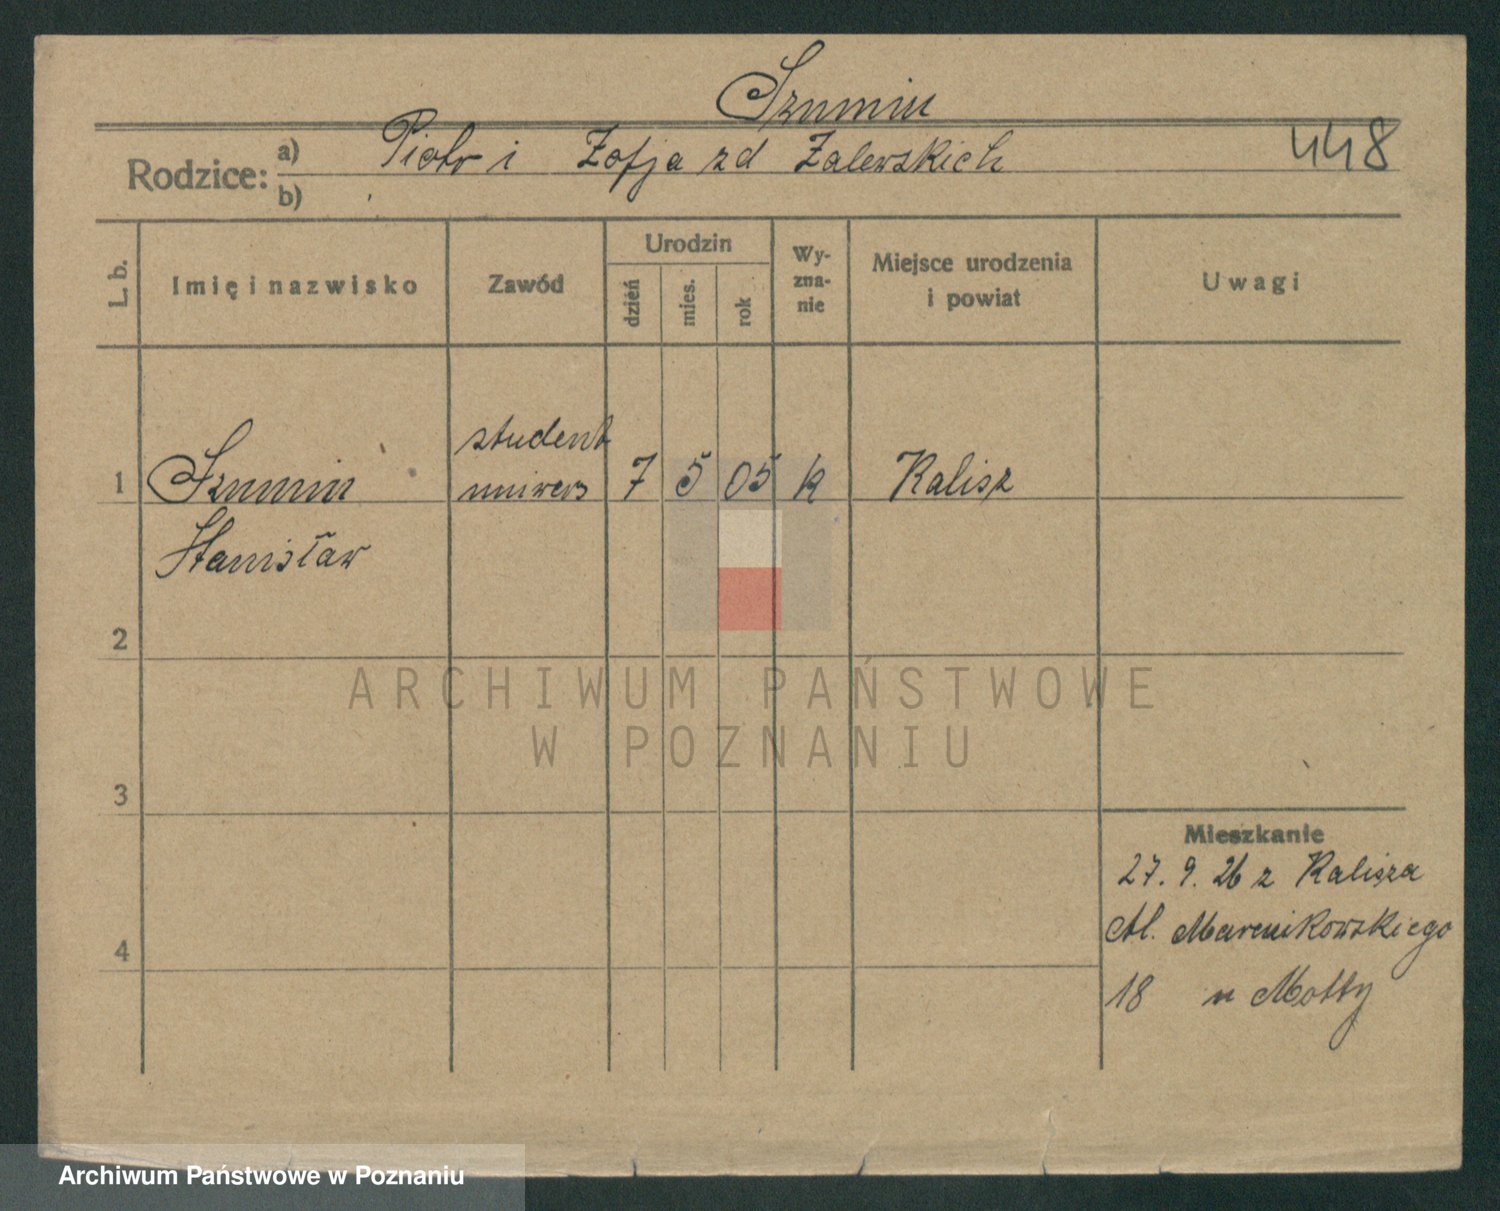 Szumin
Rodzice:
a) Piotr i Zofja zd Zalewskich
448
b)
L. b.
Imię i nazwisko
Zawód
Urodzin
dzień
mies.
rok
Wy-
zna-
nie
Miejsce urodzenia
i powiat
Uwagi
1
Szumin
Stanisław
student
uniwers
7 5 05 k
Kalisz
2
ARCHIWUM PAŃSTWOWE
W POZNANIU
3
Mieszkanie
27. 9. 26 z Kalisza
Al. Marcinkowskiego
18 u Motty
4
Archiwum Państwowe w Poznaniu